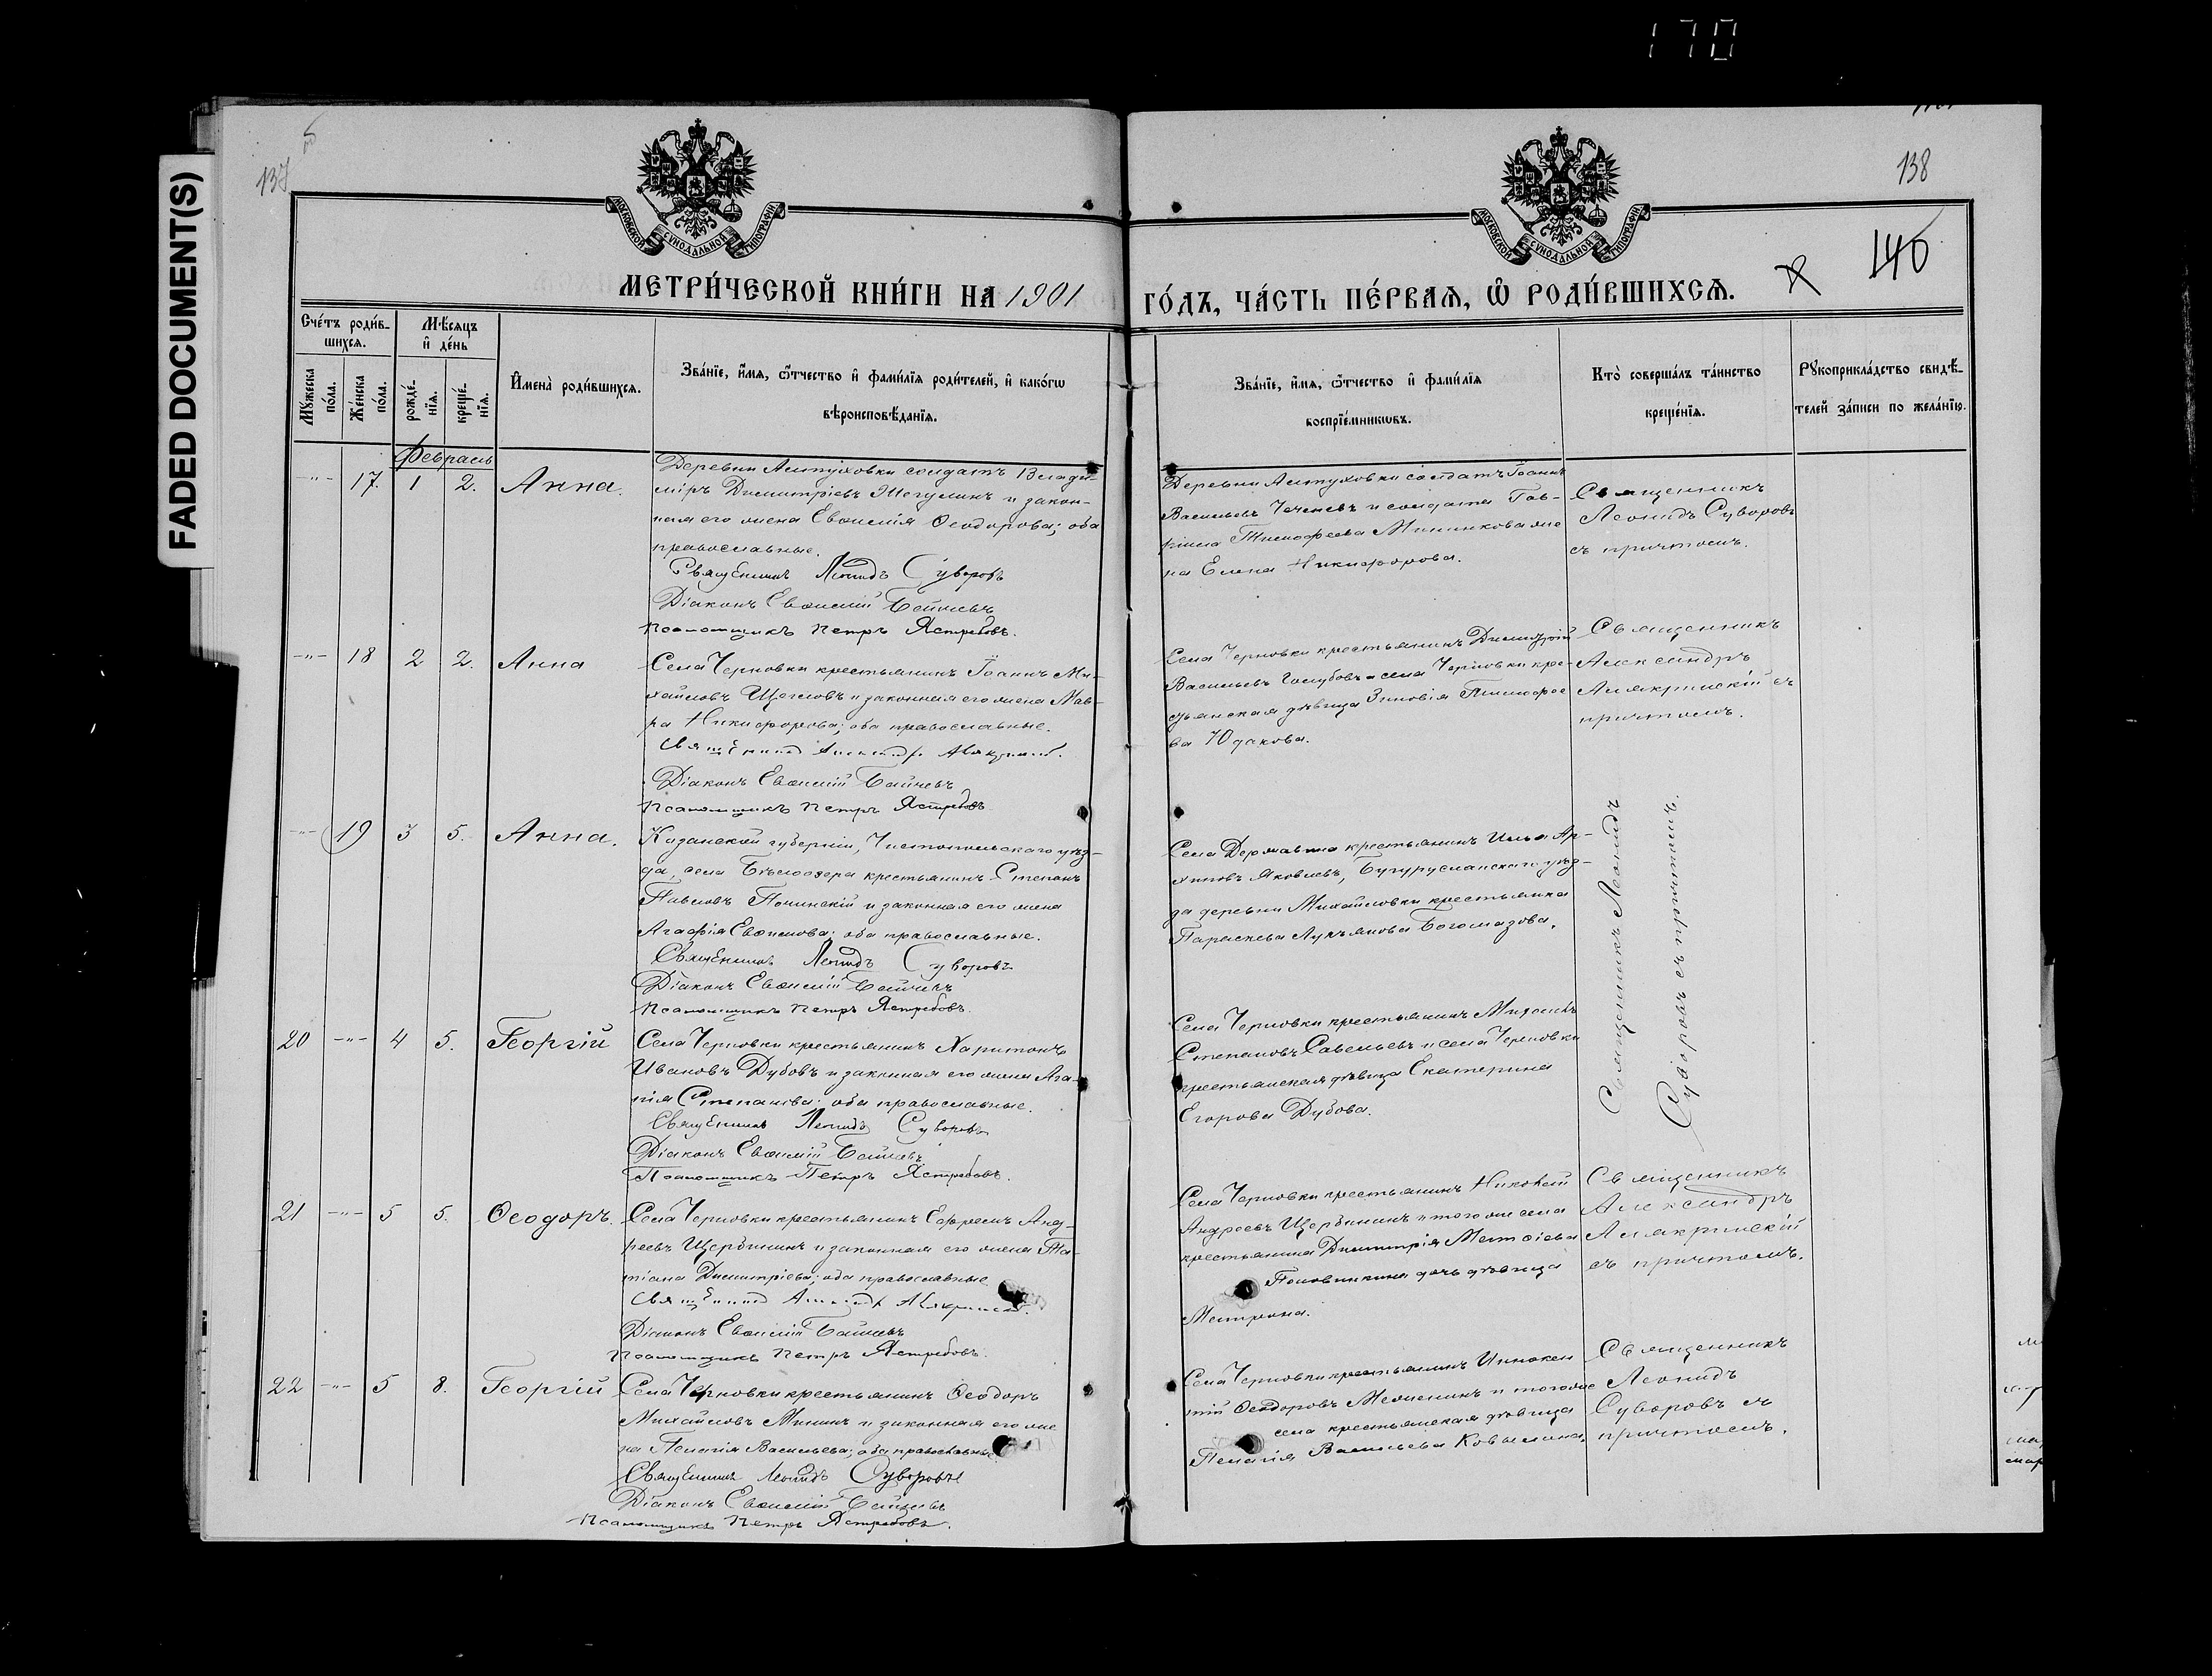 170
FADED DOCUMENT(S)
137
138
140
МОСКОВСКОЙ СУНОДАЛЬНОЙ ТИПОГРАФІИ
МОСКОВСКОЙ СУНОДАЛЬНОЙ ТИПОГРАФІИ
МЕТРИ́ЧЕСКОЙ КНИ́ГИ НА 1901 ГО́ДЪ, ЧА́СТЬ ПЕ́РВАЯ, Ѿ РОДИ́ВШИХСѦ.
Сче́тъ роди́в-
шихсѧ.
Мѣ́сѧцъ
и҆ де́нь
Мꙋ́жеска по́ла.
Же́нска по́ла.
рожде́-
нїѧ.
креще́-
нїѧ.
И҆мена̀ роди́вшихсѧ.
Зва́нїе, и҆́мѧ, ѻ҆́тчество и҆ фами́лїѧ роди́телей, и҆ како́гѡ
вѣроисповѣ́данїѧ.
Зва́нїе, и҆́мѧ, ѻ҆́тчество и҆ фами́лїѧ
воспрїе́мникѡвъ.
Кто̀ соверша́лъ та́инство
креще́нїѧ.
Рꙋкоприкла́дство свидѣ́-
телей за́писи по жела́нїю.
Февраль
-"- 17. 1 2. Анна.
Деревни Алтуховки солдатъ Влади-
міръ Димитріевъ Жегулинъ и закон-
ная его жена Евѳимія Ѳеодорова; оба
православные.
Священникъ Леонидъ Суворовъ
Діаконъ Евѳимій
Псаломщикъ Петръ Ястребовъ.
Деревни Алтуховки солдатъ Іоаннъ
Васильевъ Чеченевъ и солдата Гав-
ріила Тимофеева Мининкова же-
на Елена Никифорова.
Священникъ
Леонидъ Суворовъ
съ причтомъ.
-"- 18 2 2. Анна
Села Черновки крестьянинъ Іоаннъ Ми-
хайловъ Щегловъ и законная его жена Мав-
ра Никифорова; оба православные.
Священникъ Александръ
Діаконъ Евѳимій
Псаломщикъ Петръ Ястребовъ
Села Черновки крестьянинъ Димитрій
Васильевъ Голубовъ и села Черновки кре-
стьянская дѣвица Зиновія Тимофее-
ва Юдакова.
Священникъ
Александръ
Алякринскій съ
причтомъ.
-"- 19 3 5. Анна.
Казанской губерніи, Чистопольскаго уѣз-
да, села Бѣлоозера крестьянинъ Степанъ
Павловъ Починскій и законная его жена
Агафія Евѳимова; оба православные.
Священникъ Леонидъ Суворовъ
Діаконъ Евѳимій
Псаломщикъ Петръ Ястребовъ.
Села Державина крестьянинъ Илья Ар-
хиповъ Яковлевъ, Бугурусланскаго уѣз-
да деревни Михайловки крестьянка
Параскева Лукьянова Богомазова.
Священникъ Леонидъ
Суворовъ съ причтомъ.
20 -"- 4 5. Георгій
Села Черновки крестьянинъ Харитонъ
Ивановъ Дубовъ и законная его жена Ага-
пія Степанова; оба православные.
Священникъ Леонидъ Суворовъ
Діаконъ Евѳимій
Псаломщикъ Петръ Ястребовъ.
Села Черновки крестьянинъ Михаилъ
Степановъ Савельевъ и села Черновки
крестьянская дѣвица Екатерина
Егорова Дубова.
21 -"- 5 5. Ѳеодоръ.
Села Черновки крестьянинъ Ефремъ Анд-
реевъ Щербининъ и законная его жена Та-
тіана Димитріева; оба православные
Священникъ Александръ
Діаконъ Евѳимій
Псаломщикъ Петръ Ястребовъ.
Села Черновки крестьянинъ Николай
Андреевъ Щербининъ и того же села
крестьянина Димитрія Матѳіева
Половинкина дочь дѣвица
Матрона.
Священникъ
Александръ
Алякринскій
съ причтомъ.
22 -"- 5 8. Георгій
Села Черновки крестьянинъ Ѳеодоръ
Михайловъ Мининъ и законная его же-
на Пелагія Васильева; оба православные
Священникъ Леонидъ Суворовъ
Діаконъ Евѳимій
Псаломщикъ Петръ Ястребовъ.
Села Черновки крестьянинъ Иннокен-
тій Ѳеодоровъ и того же
села крестьянская дѣвица
Пелагія Васильева Ковылина.
Священникъ
Леонидъ
Суворовъ съ
причтомъ.